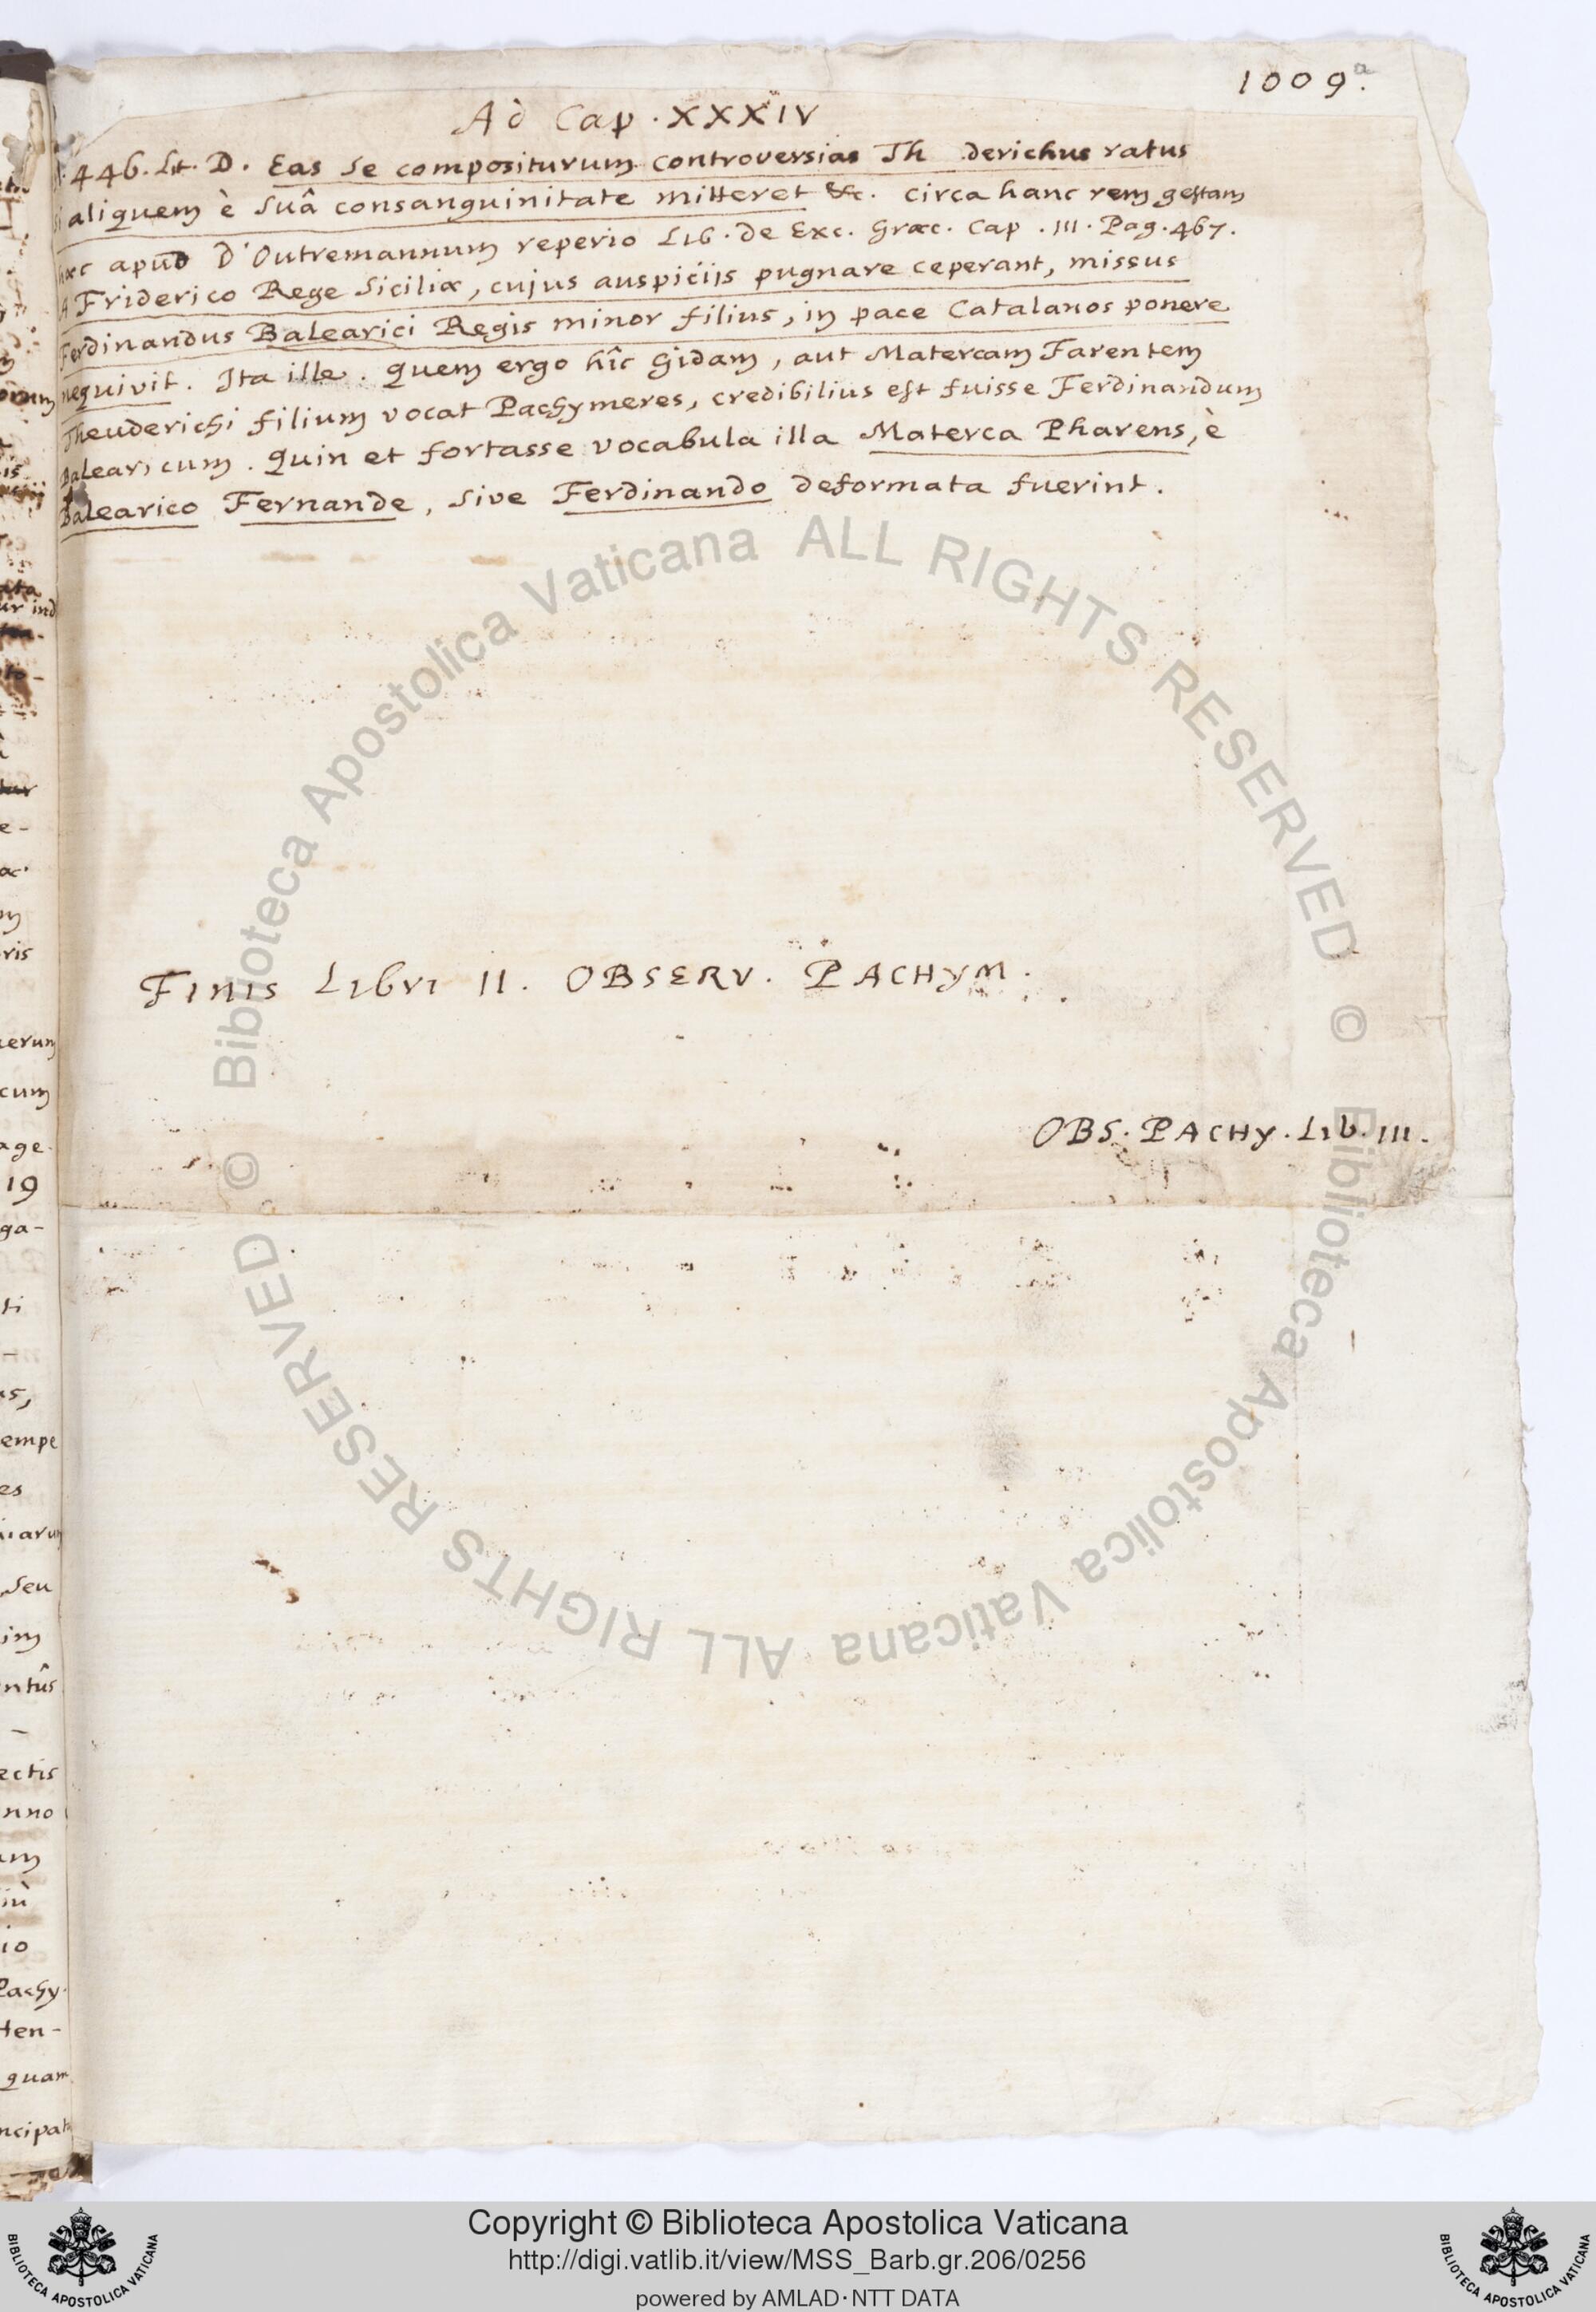 1009.a
Ad Cap. XXXIV
446. Lit. D. Eas se compositurum controversias Th derichus ratus
si aliquem è suâ consanguinitate mitteret &c. circa hanc rem gestam
hæc apud D'Outremannum reperio Lib. de Exc. Græc. Cap. III. Pag. 467.
A Friderico Rege Siciliæ, cujus auspicijs pugnare ceperant, missus
Ferdinandus Balearici Regis minor filius, in pace Catalanos ponere
nequivit. Ita ille. Quem ergo hîc Gidam, aut Matercam Farentem
Theuderichi filium vocat Pachymeres, credibilius est fuisse Ferdinandum
Balearicum. Quin et fortasse vocabula illa Materca Pharens, è
Balearico Fernande, sive Ferdinando deformata fuerint.
Finis Libri II. OBSERV. PACHYM.
OBS. PACHY. Lib. III.
© Biblioteca Apostolica Vaticana ALL RIGHTS RESERVED
© Biblioteca Apostolica Vaticana ALL RIGHTS RESERVED
ur ind
e-
ris
cum
age.
19
ga-
ti
empe
es
seu
im
ntûs
ectis
nno
io
Pachy.
Hen-
quam
Copyright © Biblioteca Apostolica Vaticana
http://digi.vatlib.it/view/MSS_Barb.gr.206/0256
powered by AMLAD·NTT DATA
BIBLIOTECA APOSTOLICA VATICANA
BIBLIOTECA APOSTOLICA VATICANA